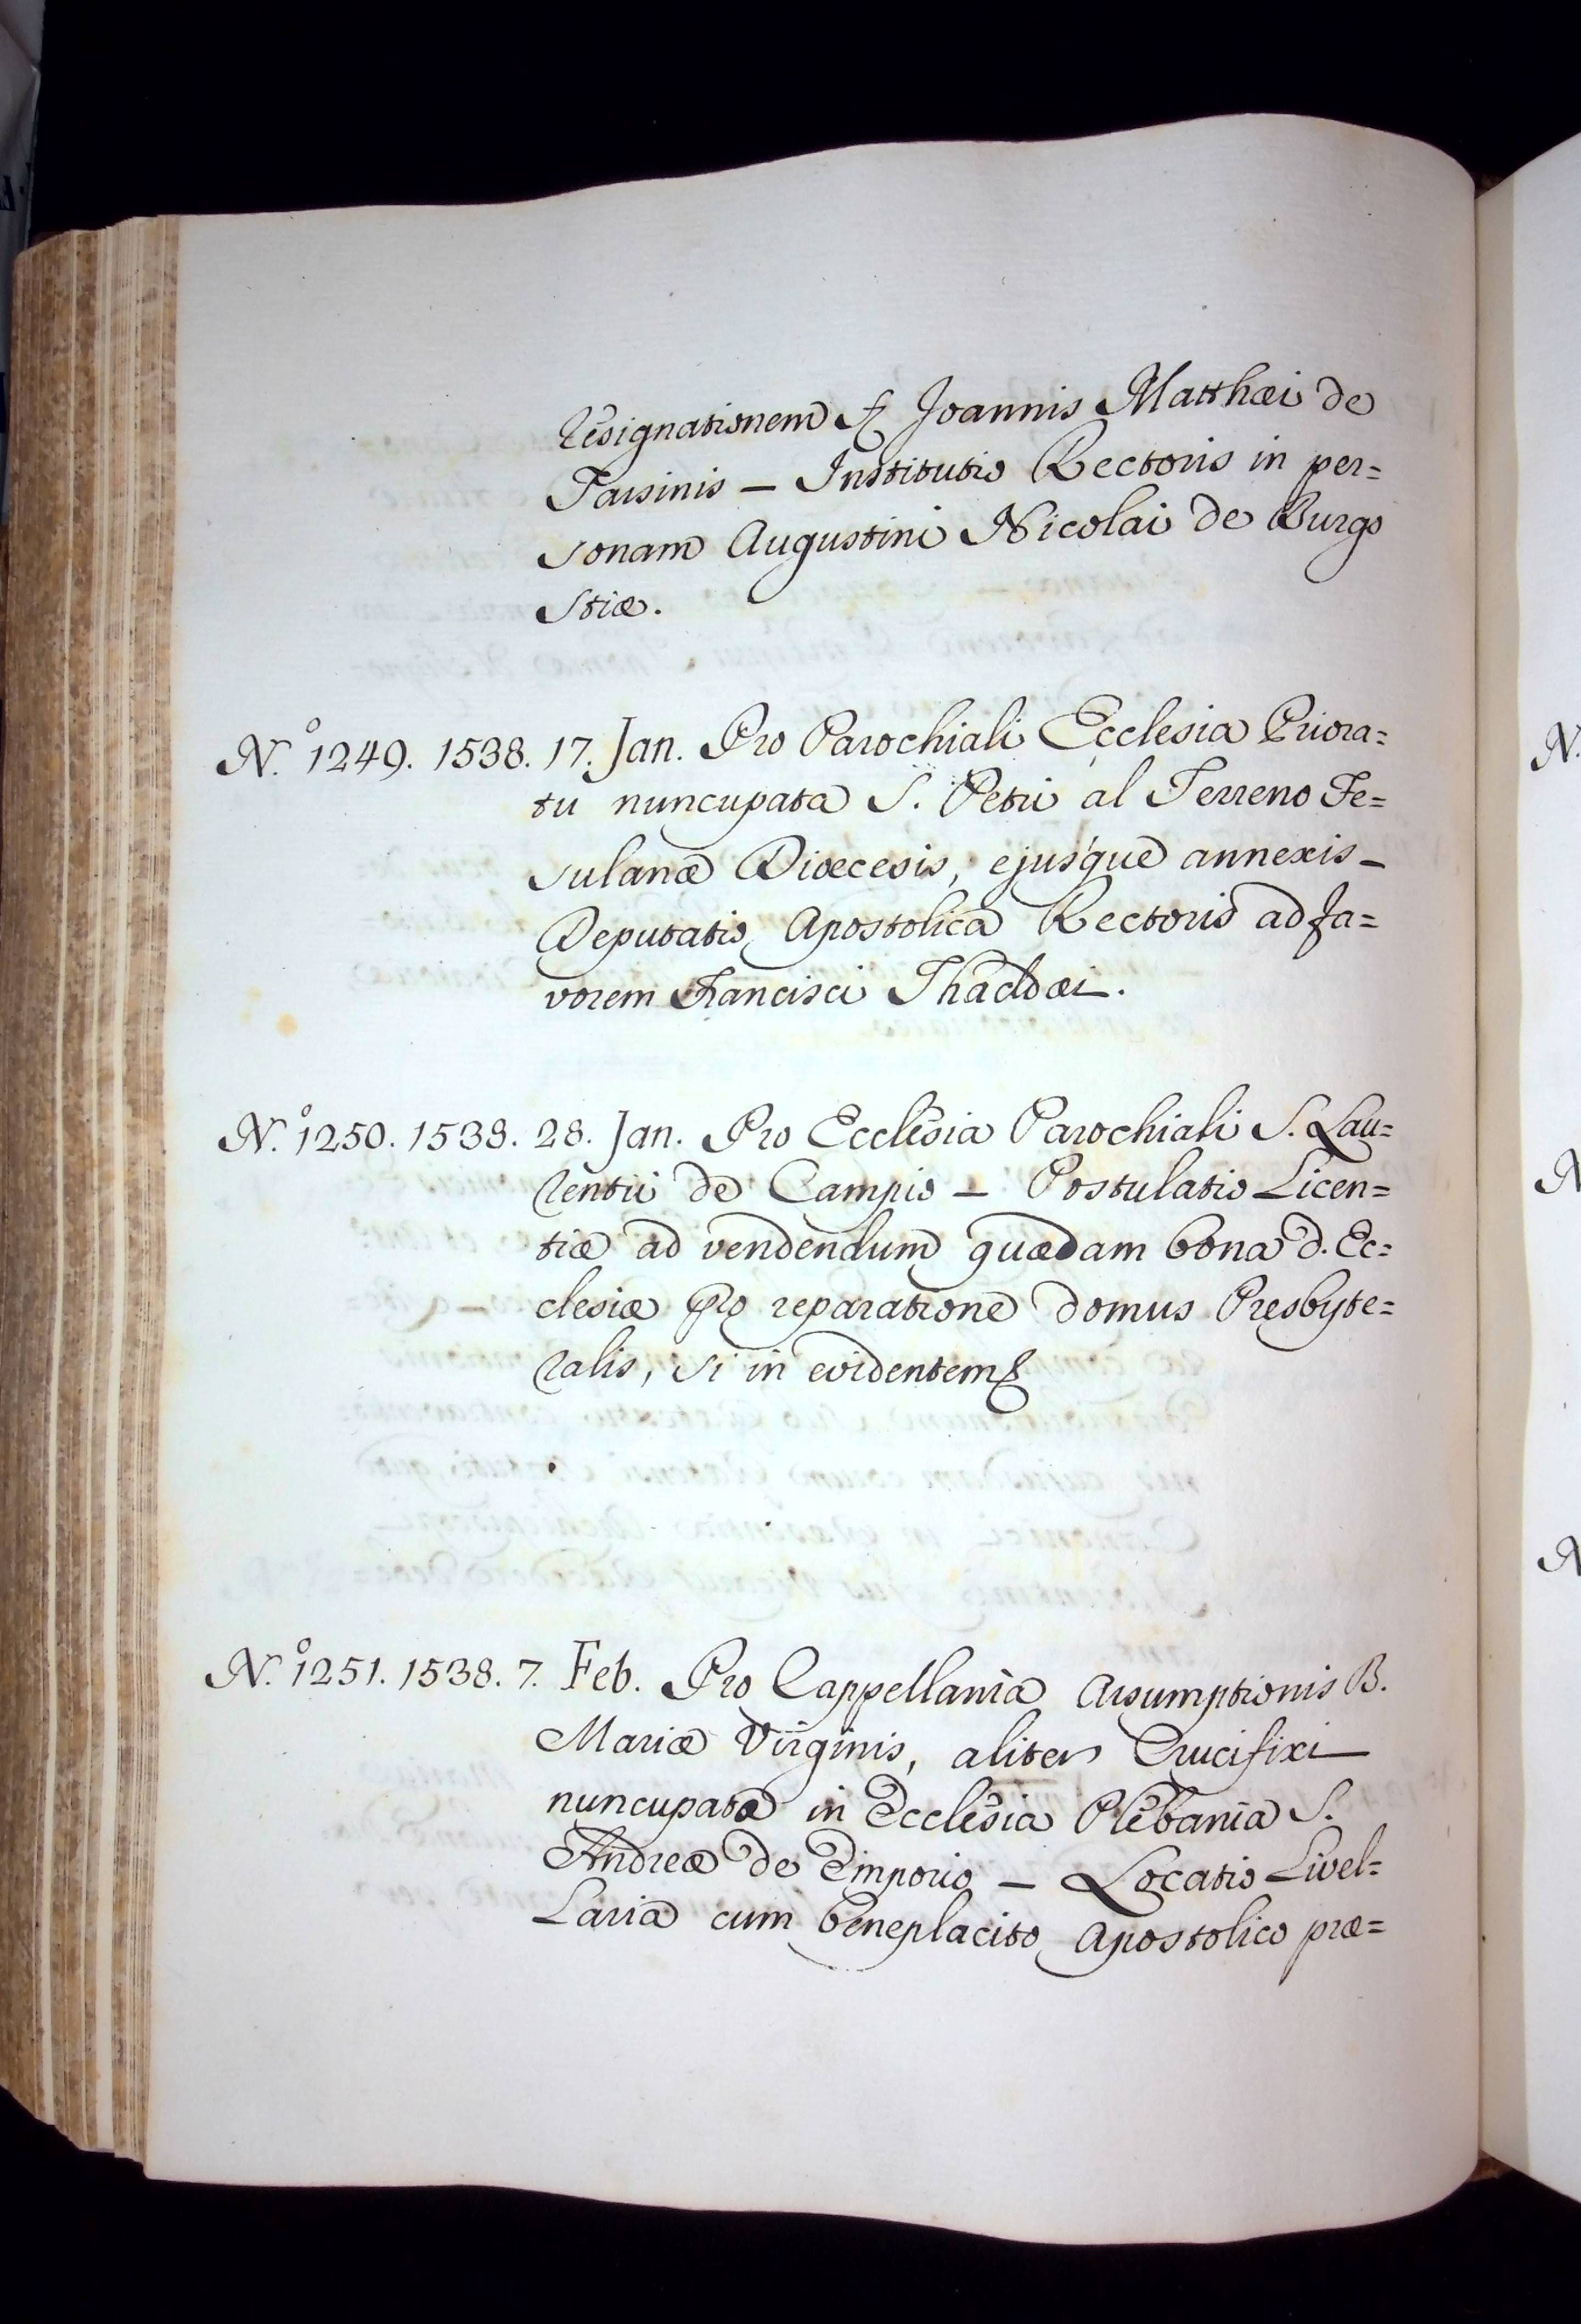 Resignationem f. Joannis Matthæi de
Tarsinis — Institutio Rectoris in per=
sonam Augustini Nicolai de Burgo
Stiæ.
N.º 1249. 1538. 17. Jan. Pro Parochiali Ecclesia Priora=
tu nuncupata S. Petri al Terreno Fe=
sulanæ Diœcesis, ejusque annexis —
Deputatio Apostolica Rectoris ad fa=
vorem Francisci Thaddæi.
N.º 1250. 1538. 28. Jan. Pro Ecclesia Parochiali S. Lau=
rentii de Campio — Postulatio Licen=
tiæ ad vendendum quædam bona d. Ec=
clesiæ pro reparatione domus Presbyte=
ralis, si in evidentem &
N.º 1251. 1538. 7. Feb. Pro Cappellania Assumptionis B.
Mariæ Virginis, aliter Crucifixi
nuncupata in Ecclesia Plebania S.
Andreæ de Emporio — Locatio Livel=
laria cum beneplacito Apostolico præ=